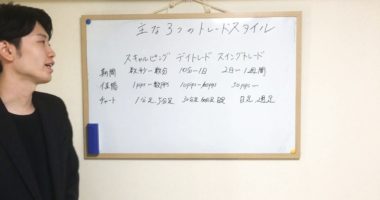 主な3つのトレードスタイル
スキャルピング デイトレード スイングトレード
期間 数秒～数分 10分～1日 2日～1週間
値幅 1pips～数pips 10pips～ 50pips～
チャート 1分足 5分足 日足 週足